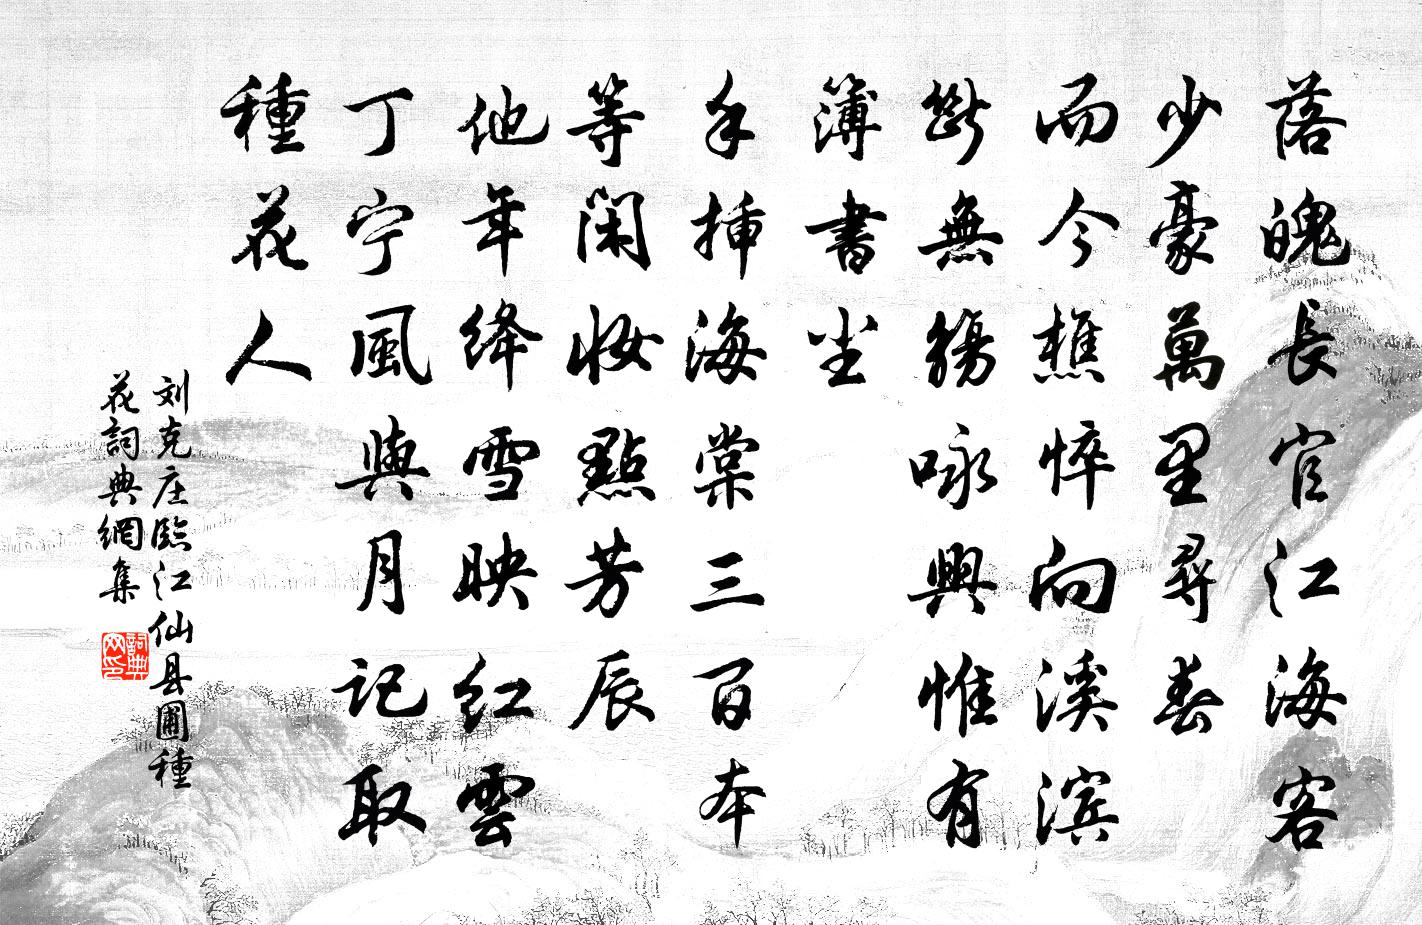 落魄長官江海客
少豪萬里尋春
而今憔悴向溪滨
斷無觴咏興惟有
簿書尘
手揷海棠三百本
等閑妝點芳辰
他年绛雪映红雲
丁宁風與月记取
種花人
刘克庄臨江仙县圃種
花詞典網集
詞典
网印